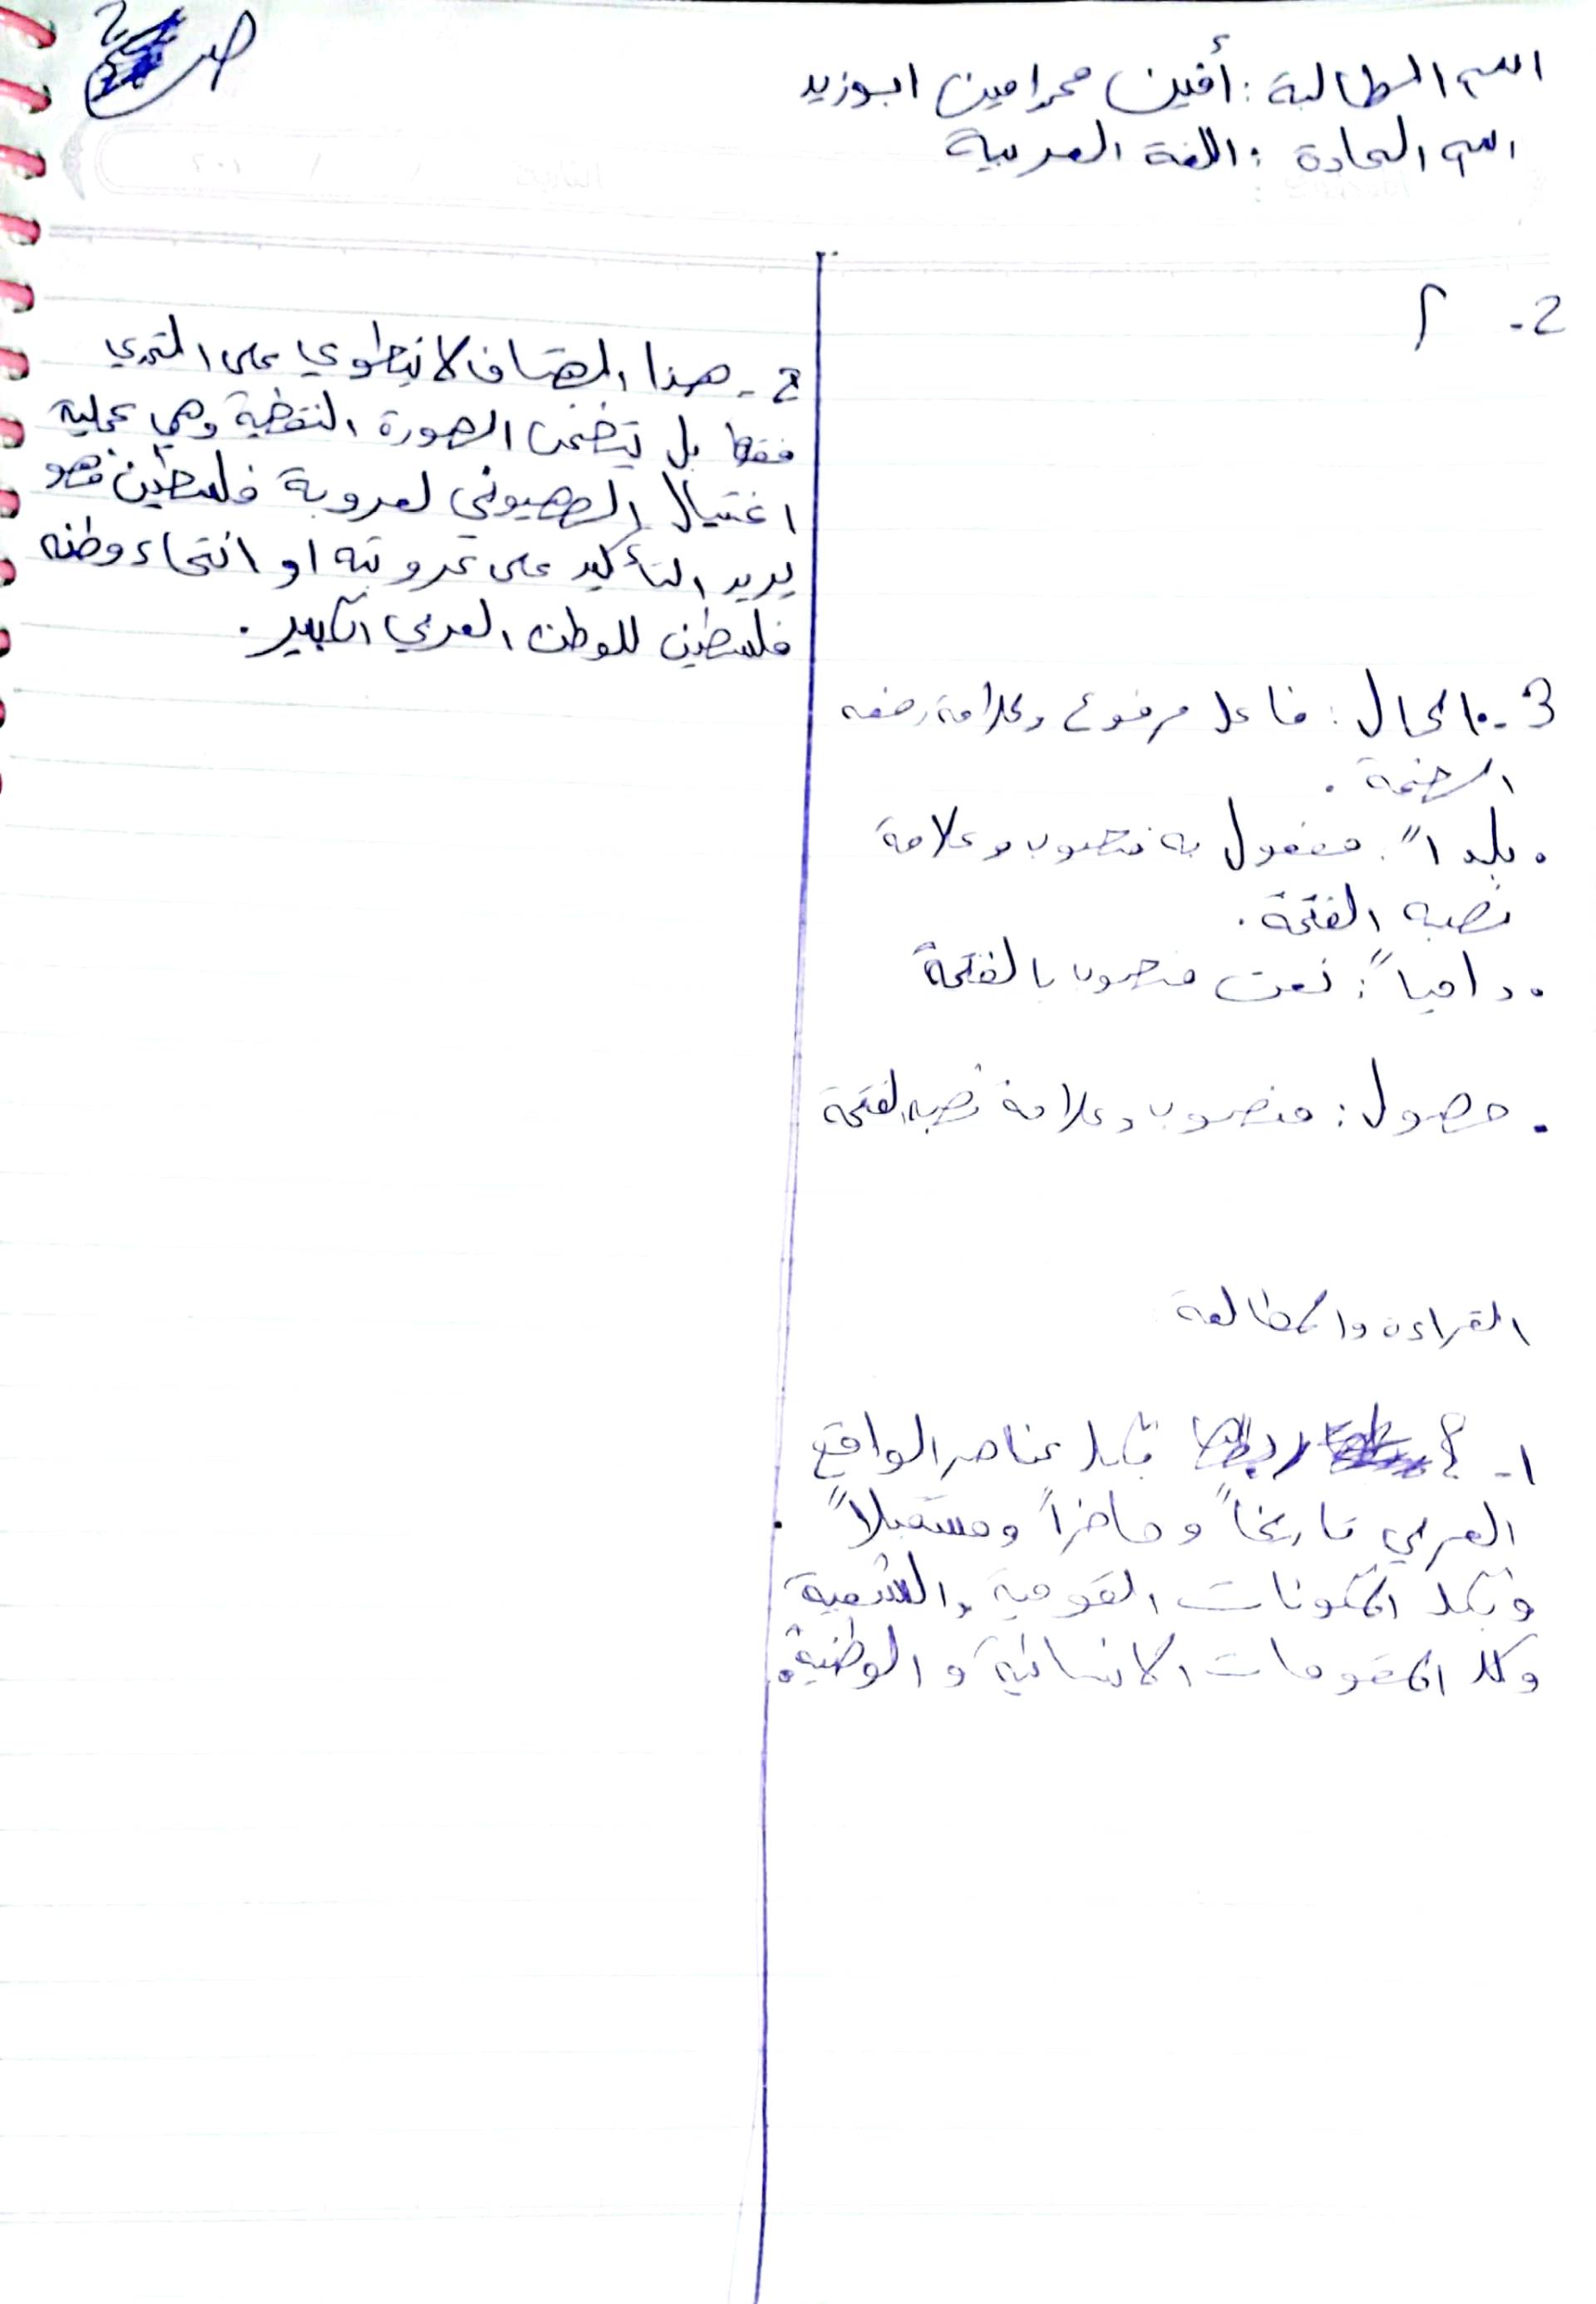 ص2
اسم الطالبة : أفين محمد امين ابوزيد
اسم المادة : اللغة العربية
2- أ
3- • المحال : فاعل مرفوع وعلامة رفعه
الضمة .
• بلداً : مفعول به منصوب وعلامة
نصبه الفتحة .
• دامياً : نعت منصوب بالفتحة
• حصول : منصوب وعلامة نصبه الفتحة
القراءة والمطالعة
1- بكل عناصر الواقع
العربي تاريخاً وحاضراً ومستقبلاً .
وبكل المكونات القومية والشعبية
وكل المقومات الانسانية والوطنية .
2- هذا الهتاف لا ينطوي على التحدي
فقط بل يتضمن الصورة النقضية وهي عملية
اغتيال الصهيوني لعروبة فلسطين فهو
يريد التأكيد على عروبته او انتماء وطنه
فلسطين للوطن العربي الكبير .